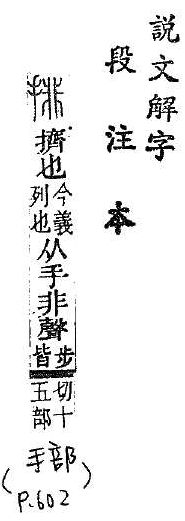 說文解字
段注本
排 擠也今義列也从手非聲步皆切十五部
(手部)
(P.602)